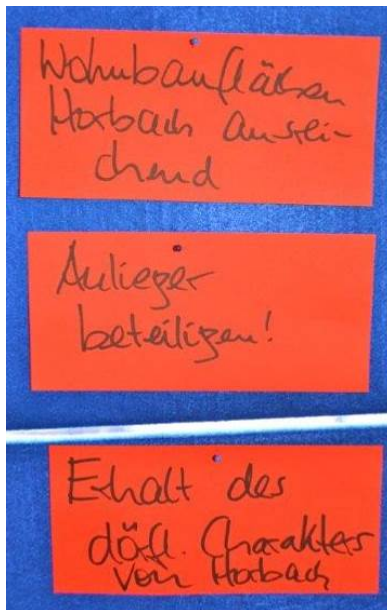 Wohnbauflächen
Horbach ausrei-
chend
Anlieger
beteiligen!
Erhalt des
dörfl. Charakters
von Horbach